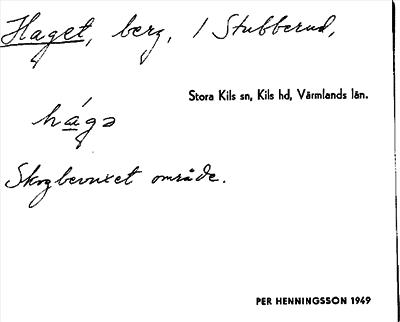 Haget, berg, 1 Stubberud,
Stora Kils sn, Kils hd, Värmlands län.
há̱gə
Skogbevuxet område.
PER HENNINGSSON 1949